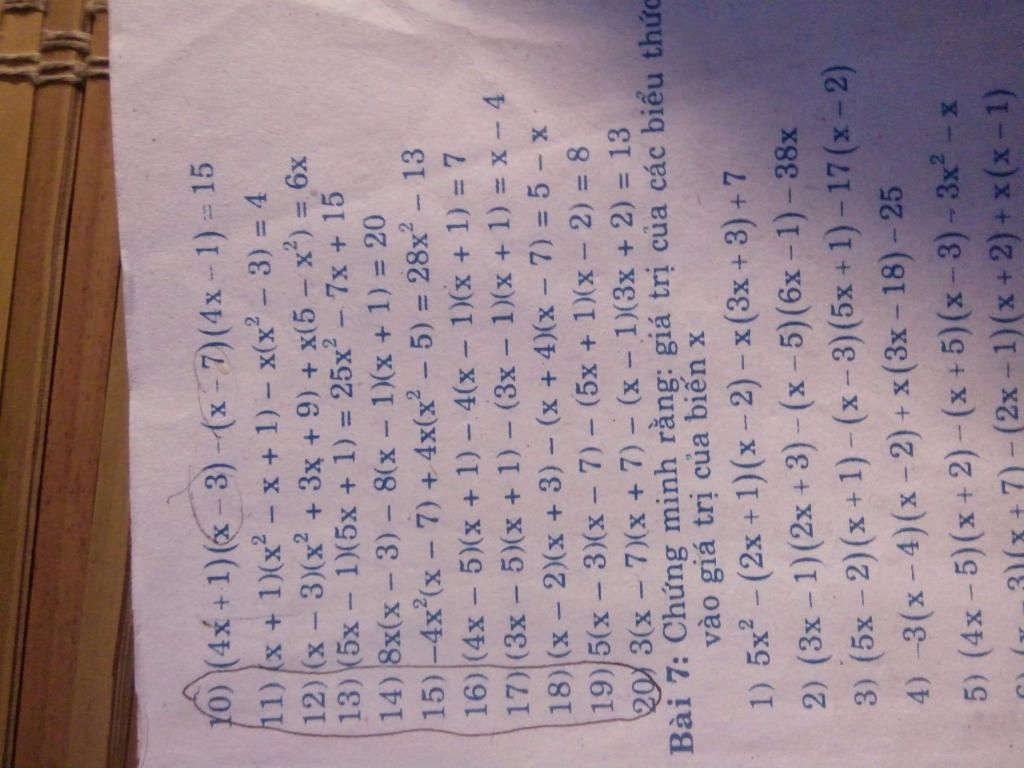 10) (4x + 1)(x - 3) - (x - 7)(4x - 1) = 15
11) (x + 1)(x² - x + 1) - x(x² - 3) = 4
12) (x - 3)(x² + 3x + 9) + x(5 - x²) = 6x
13) (5x - 1)(5x + 1) = 25x² - 7x + 15
14) 8x(x - 3) - 8(x - 1)(x + 1) = 20
15) -4x²(x - 7) + 4x(x² - 5) = 28x² - 13
16) (4x - 5)(x + 1) - 4(x - 1)(x + 1) = 7
17) (3x - 5)(x + 1) - (3x - 1)(x + 1) = x - 4
18) (x - 2)(x + 3) - (x + 4)(x - 7) = 5 - x
19) 5(x - 3)(x - 7) - (5x + 1)(x - 2) = 8
20) 3(x - 7)(x + 7) - (x - 1)(3x + 2) = 13
Bài 7: Chứng minh rằng: giá trị của các biểu thức
vào giá trị của biến x
1) 5x² - (2x + 1)(x - 2) - x(3x + 3) + 7
2) (3x - 1)(2x + 3) - (x - 5)(6x - 1) - 38x
3) (5x - 2)(x + 1) - (x - 3)(5x + 1) - 17(x - 2)
4) -3(x - 4)(x - 2) + x(3x - 18) - 25
5) (4x - 5)(x + 2) - (x + 5)(x - 3) - 3x² - x
6) (x - 3)(x + 7) - (2x - 1)(x + 2) + x(x - 1)